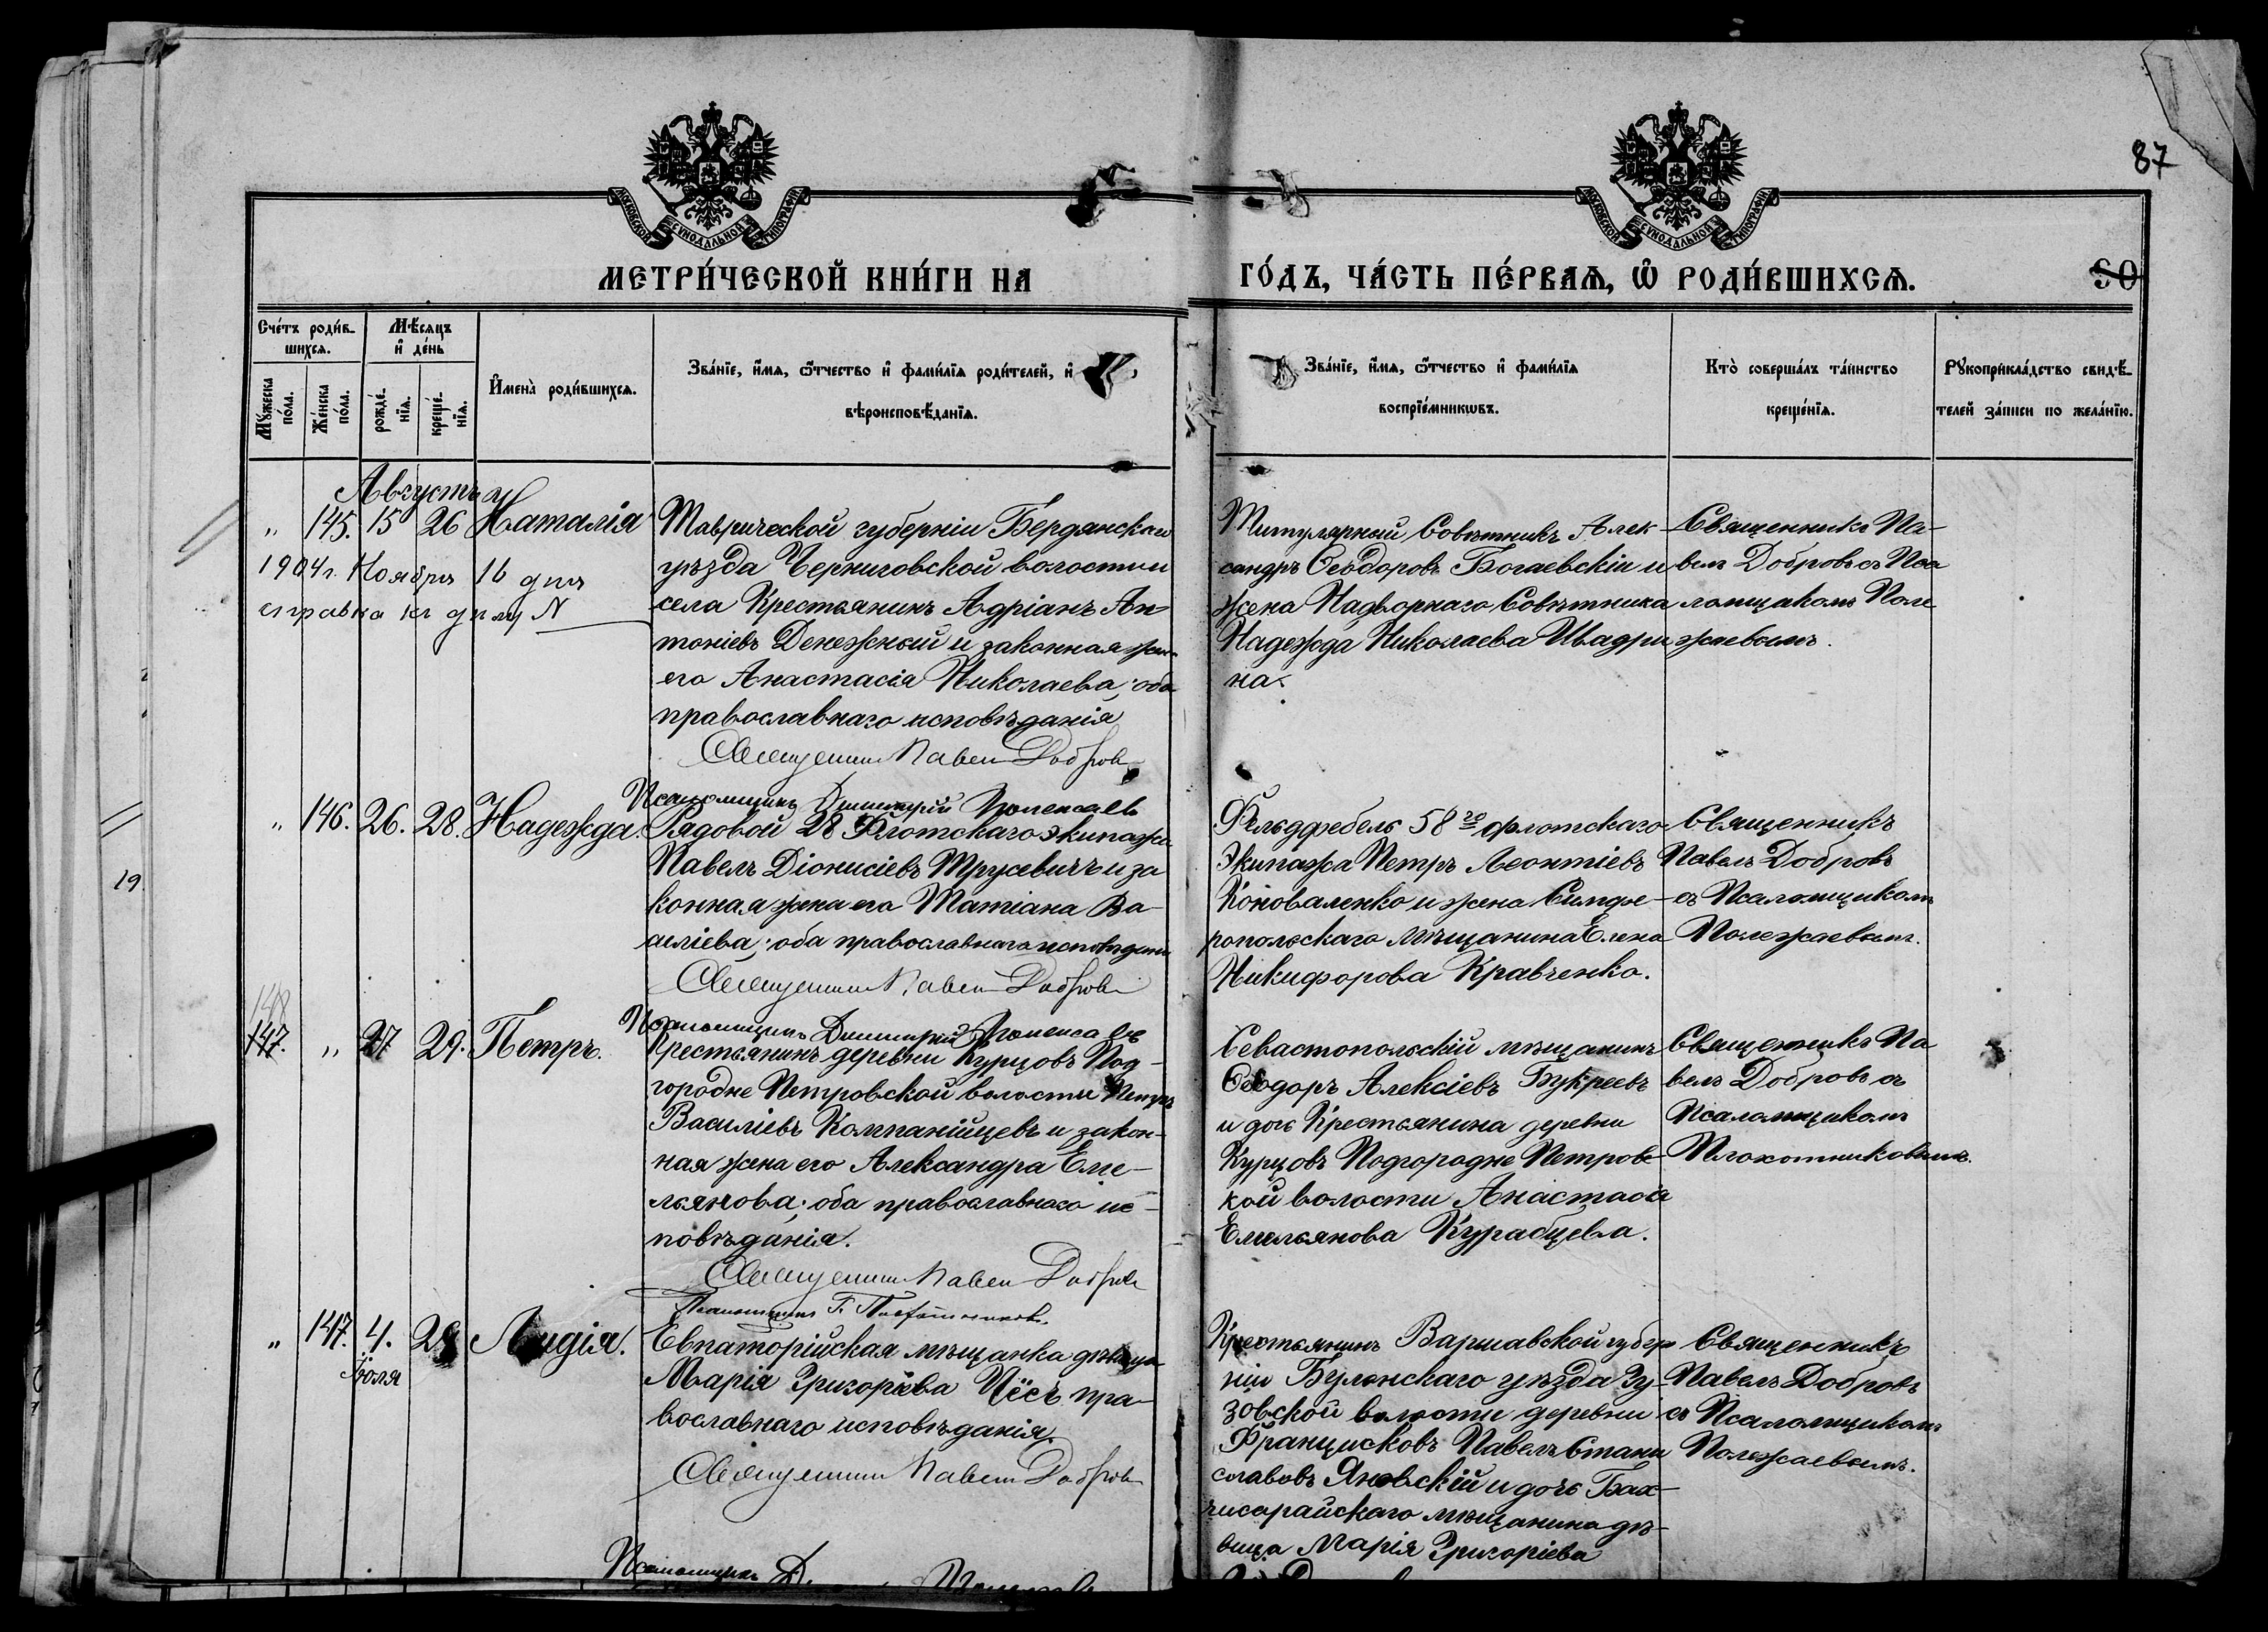 87
МОСКОВСКОЙ СѴНОДАЛЬНОЙ ТИПОГРАФІИ
МОСКОВСКОЙ СѴНОДАЛЬНОЙ ТИПОГРАФІИ
МЕТРИ́ЧЕСКОЙ КНИ́ГИ НА ГО́ДЪ, ЧА́СТЬ ПЕ́РВАѦ, Ѡ҆ РОДИ́ВШИХСѦ. 90
Сче́тъ роди́в-
шихсѧ.
Мꙋ́жеска по́ла.
Же́нска по́ла.
Мѣ́сѧцъ
и҆ де́нь
рожде́-
нїѧ.
креще́-
нїѧ.
И҆мена̀ роди́вшихсѧ.
Зва́нїе, и҆́мѧ, ѻ҆́тчество и҆ фами́лїѧ роди́телей, и҆
вѣроисповѣ́данїѧ.
Зва́нїе, и҆́мѧ, ѻ҆́тчество и҆ фами́лїѧ
воспрїе́мникѡвъ.
Кто̀ соверша́лъ та́инство
креще́нїѧ.
Рꙋкоприкла́дство свидѣ́-
телей за́писи по жела́нїю.
Августъ
" 145. 15 26 Наталія
1904 г. Ноября 16 дня
справка къ дѣлу N
Таврической губерніи Бердянскаго
уѣзда Черниговской волости и
села Крестьянинъ Адріанъ Ан-
тоніевъ Денежный и законная жена
его Анастасія Николаева; оба
православнаго исповѣданія
Священникъ Павелъ Добровъ
Псаломщикъ Димитрій Полежаевъ
Титулярный Совѣтникъ Алек-
сандръ Ѳеодоровъ Богаевскій и
жена Надворнаго Совѣтника
Надежда Николаева Шадри
на.
Священникъ Па-
велъ Добровъ съ Пса
ломщикомъ Поле
жаевымъ.
" 146. 26. 28. Надежда.
Рядовой 28 Флотскаго экипажа
Павелъ Діонисіевъ Трусевичъ и за
конная жена его Татіана Ва-
силіева; оба православнаго исповѣданія
Священникъ Павелъ Добровъ
Псаломщикъ Димитрій Полежаевъ
Фельдфебель 58го флотскаго
Экипажа Петръ Леонтіевъ
Коноваленко и жена Симфе-
ропольскаго мѣщанина Елена
Никифорова Кравченко.
Священникъ
Павелъ Добровъ
съ Псаломщикомъ
Полежаевымъ.
148
147. " 27 29. Петръ.
Крестьянинъ деревни Курцовъ Под-
городне Петровской волости Петръ
Василіевъ Компанійцевъ и закон-
ная жена его Александра Еме-
льянова; оба православнаго ис-
повѣданія.
Священникъ Павелъ Добровъ
Псаломщикъ Г. Плохотниковъ.
Севастопольскій мѣщанинъ
Ѳеодоръ Алексіевъ Букреевъ
и дочь Крестьянина деревни
Курцовъ Подгородне Петровс
кой волости Анастасія
Емельянова Курабцева.
Священникъ Па
велъ Добровъ съ
Псаломщикомъ
Плохотниковымъ.
" 147. 4. 29 Лидія.
Іюля
Евпаторійская мѣщанка дѣвица
Марія Григорьева Цёсъ пра-
вославнаго исповѣданія.
Священникъ Павелъ Добровъ
Псаломщикъ
Крестьянинъ Варшавской губер
ніи Блонскаго уѣзда Гу-
зовской волости деревни
Францисковъ Павелъ Стани
славовъ Яновскій и дочь Бах-
чисарайскаго мѣщанина дѣ-
вица Марія Григоріева
Священникъ
Павелъ Добровъ
съ Псаломщикомъ
Полежаевымъ.
19.